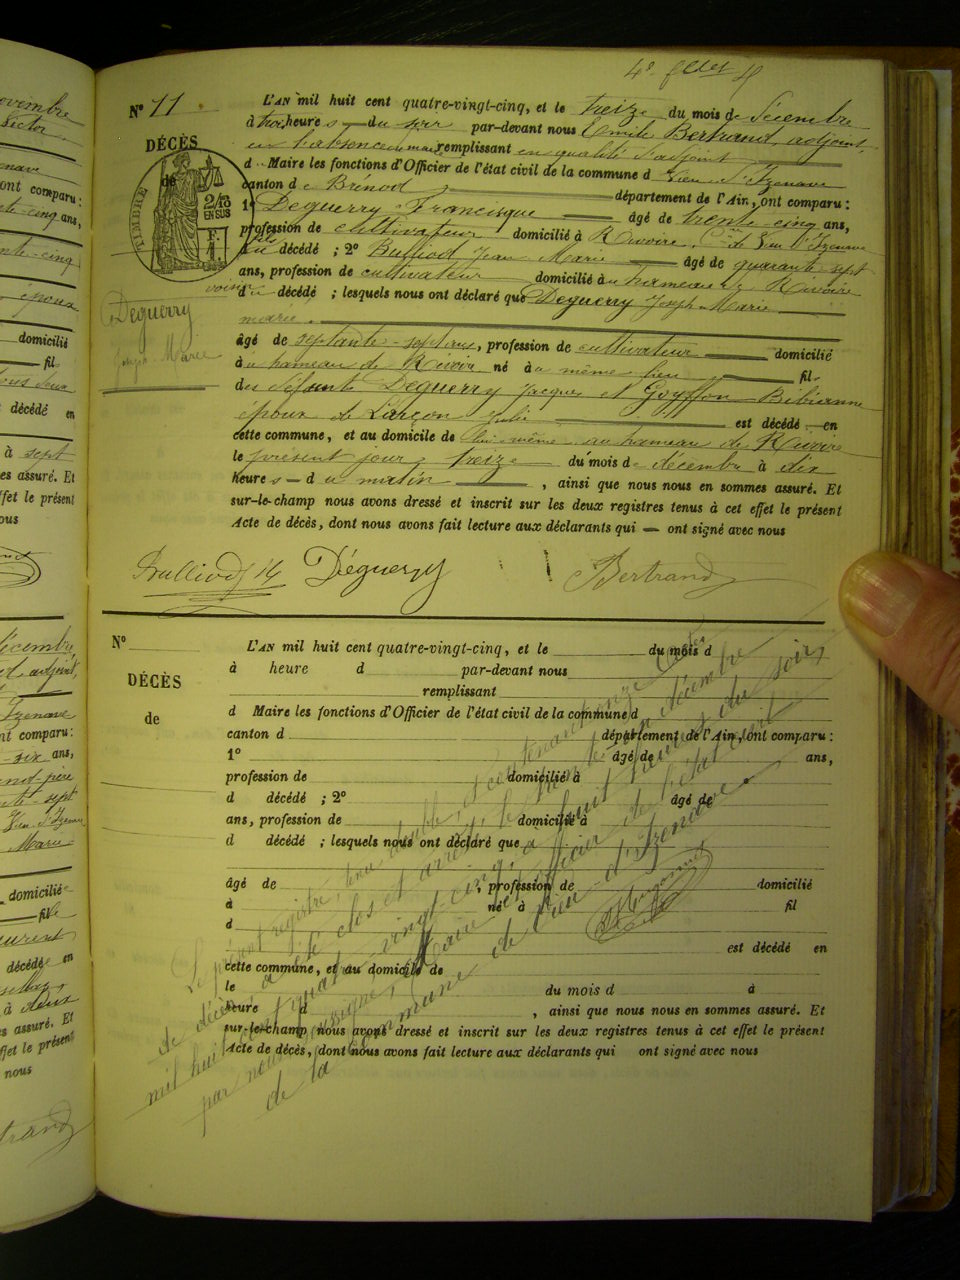 4e f
N° 11
DÉCÈS
de
TIMBRE
2/10
EN SUS
F.
Deguerry
Joseph Marie
L'AN mil huit cent quatre-vingt-cinq, et le treize du mois de décembre
à trois heures du soir par-devant nous Emile Bertrand, adjoint
en l'absence du maire remplissant en qualité d'adjoint
d Maire les fonctions d'Officier de l'état civil de la commune d Vieu d'Izenave
canton de Brénod département de l'Ain, ont comparu :
1° Deguerry Francisque âgé de trente cinq ans,
profession de cultivateur domicilié à Rivoire, Cne de Vieu d'Izenave
fils du décédé ; 2° Bulliod Jean Marie âgé de quarante sept
ans, profession de cultivateur domicilié au hameau de Rivoire
voisin du décédé ; lesquels nous ont déclaré que Deguerry Joseph Marie
marie
âgé de septante-sept ans, profession de cultivateur domicilié
à hameau de Rivoire né à même lieu fils
des défunts Deguerry Jacques et Goyffon Bibianne
époux de Larçon Julie est décédé en
cette commune, et au domicile de lui même au hameau de Rivoire
le présent jour, treize du mois de décembre à dix
heures du matin , ainsi que nous nous en sommes assuré. Et
sur-le-champ nous avons dressé et inscrit sur les deux registres tenus à cet effet le présent
Acte de décès, dont nous avons fait lecture aux déclarants qui ont signé avec nous
Bulliod Déguerry Bertrand
N°
DÉCÈS
de
L'AN mil huit cent quatre-vingt-cinq, et le du mois d
à heure d par-devant nous
remplissant
d Maire les fonctions d'Officier de l'état civil de la commune d
canton d département de l'Ain, ont comparu :
1° âgé de ans,
profession de domicilié à
d décédé ; 2° âgé de
ans, profession de domicilié à
d décédé ; lesquels nous ont déclaré que
âgé de , profession de domicilié
à né à fil
d
est décédé en
cette commune, et au domicile de
le du mois d à
heure d , ainsi que nous nous en sommes assuré. Et
sur-le-champ nous avons dressé et inscrit sur les deux registres tenus à cet effet le présent
Acte de décès, dont nous avons fait lecture aux déclarants qui ont signé avec nous
Le présent registre, tenu double, et contenant onze actes
de décès, a été clos et arrêté le trente et un décembre
mil huit cent quatre vingt-cinq, à huit heures du soir,
par nous soussigné, Maire et officier de l'état civil
de la commune de Vieu d'Izenave.